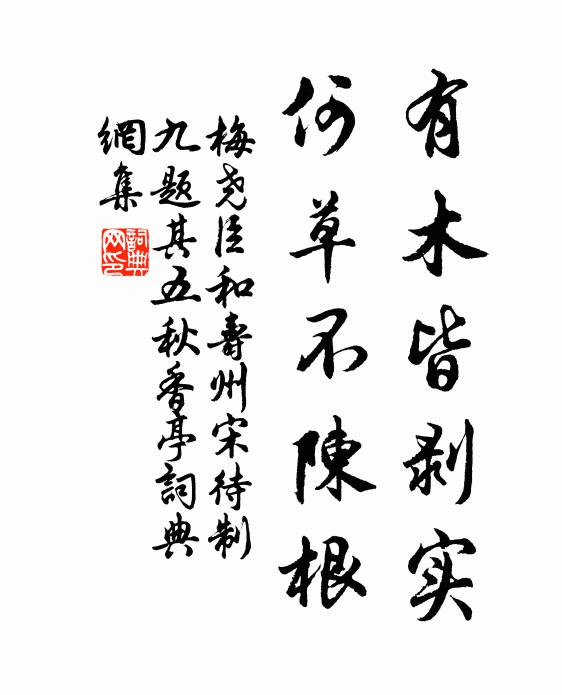 有木皆剥实
何草不陳根
梅尧臣和壽州宋待制
九题其五秋香亭詞典
網集
詞典
网印